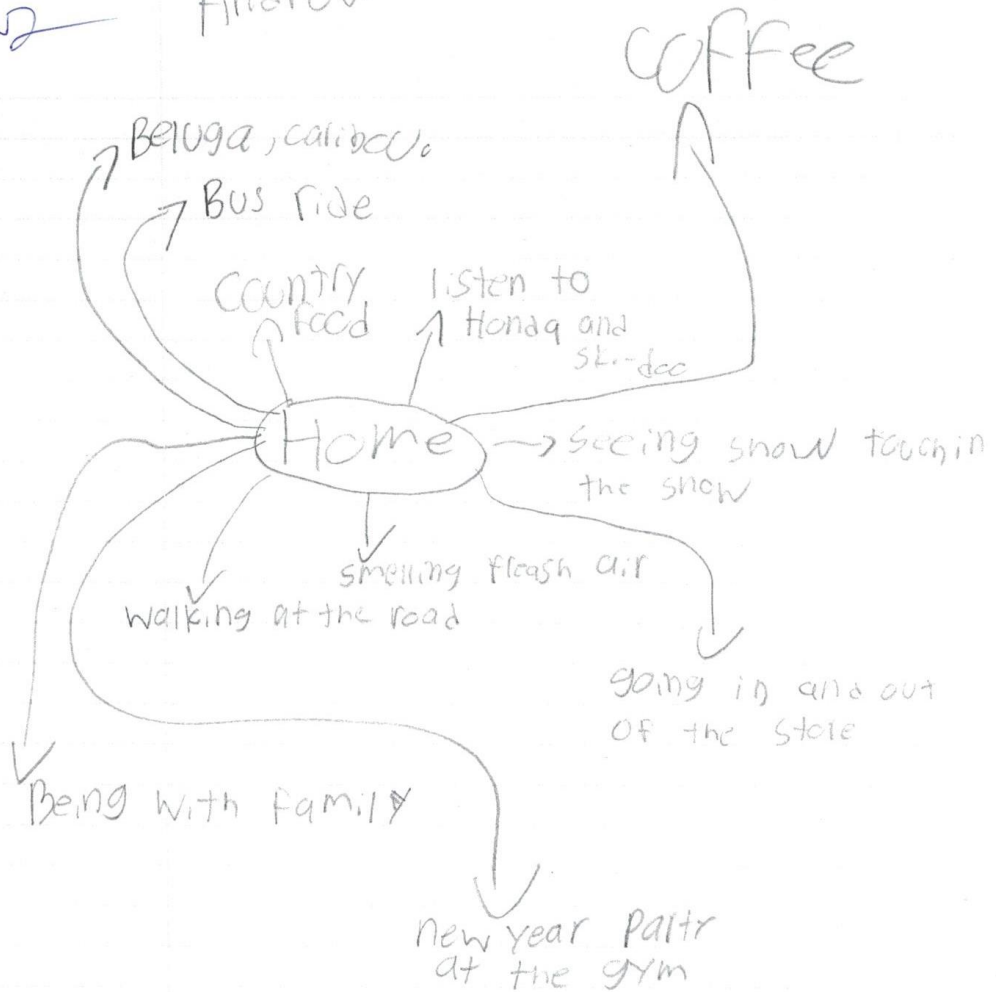 coffee
Beluga, caribou.
Bus ride
Country
food
listen to
Honda and
ski-doo
Home
seeing snow touchin
the snow
smelling freash air
walking at the road
going in and out
of the store
Being with family
new year partr
at the gym